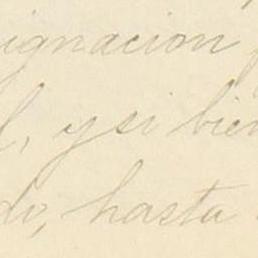 ignacion
l, y si bien
do, hasta